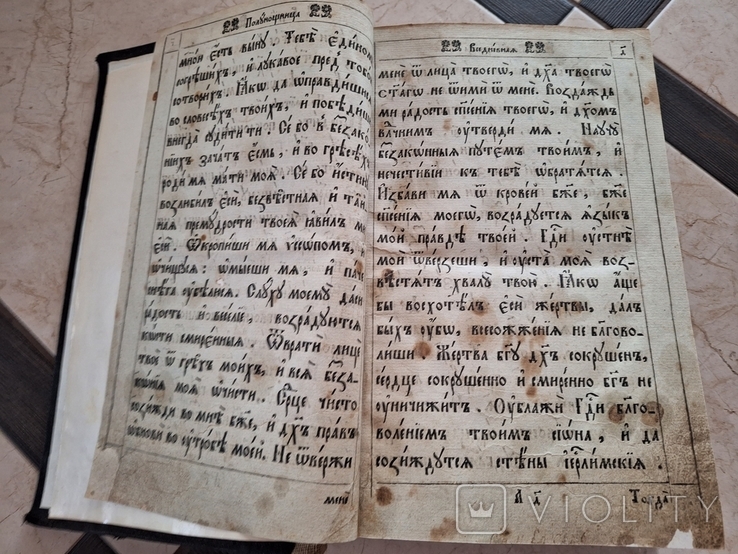 Полꙋнощница
мно́й є҆́сть вы́нꙋ. Тебѣ̀ є҆ди́номꙋ
согрѣши́хъ, и҆ лꙋка́вое пред̾ тобо́ю
сотвори́хъ. Ꙗ҆́кѡ да ѡ҆правди́шисѧ
во словесѣ́хъ твои́хъ, и҆ побѣди́ши
внегда̀ сꙋди́ти ти. Се́ бо в̾ беззако́
нїихъ зача́тъ є҆́смь, и҆ во грѣсѣ́хъ
роди́ мѧ ма́ти моѧ̀. Се́ бо и҆́стинꙋ
возлюби́лъ є҆сѝ, безвѣ́стнаѧ и҆ та́й
наѧ премꙋ́дрости твоеѧ̀ ꙗ҆ви́лъ ми
є҆сѝ. Ѡ҆кропи́ши мѧ ѵ҆ссо́помъ, и҆
ѡ҆чи́щꙋсѧ: ѡ҆мы́еши мѧ, и҆ па́че
снѣ́га ᲂу҆бѣлю́сѧ. Слꙋ́хꙋ моемꙋ̀ да́си
ра́дость и҆ весе́лїе, возра́дꙋютсѧ
кѡ́сти смире́нныѧ. Ѿвратѝ лицѐ
твоѐ ѿ грѣ̑хъ мои́хъ, и҆ всѧ̑ безза
кѡ́нїѧ моѧ̑ ѡ҆чи́сти. Се́рце чи́сто
сози́жди во мнѣ̀ бж҃е, и҆ дх҃ъ пра́въ
ѡ҆бновѝ во ᲂу҆тро́бѣ мое́й. Не ѿве́ржи
менѐ
Вседневнаѧ
д҃
менѐ ѿ лица̀ твоегѡ̀, и҆ дх҃а твоегѡ̀
ст҃а́гѡ не ѿимѝ ѿ менѐ. Возда́ждь
ми ра́дость сп҃се́нїѧ твоегѡ̀, и҆ дх҃омъ
влⷣчнимъ ᲂу҆твердѝ мѧ. Наꙋчꙋ̀
беззакѡ́нныѧ пꙋте́мъ твои̑мъ, и҆
нечести́вїи к̾ тебѣ̀ ѡ҆братѧ́тсѧ.
И҆зба́ви мѧ ѿ крове́й бж҃е, бж҃е
сп҃се́нїѧ моегѡ̀, возра́дꙋетсѧ ꙗ҆зы́къ
мо́й пра́вдѣ твое́й. Гдⷭ҇и ᲂу҆стнѣ̀
мо́й ѿве́рзеши, и҆ ᲂу҆ста̀ моѧ̑ воз
вѣстѧ́тъ хвалꙋ̀ твою̀. Ꙗ҆́кѡ а҆́ще
бы восхотѣ́лъ є҆сѝ же́ртвы, да́лъ
бы́хъ ᲂу҆́бѡ, всесожже́нїѧ не благово
ли́ши. Же́ртва бг҃ꙋ дх҃ъ сокрꙋше́нъ,
се́рдце сокрꙋше́нно и҆ смире́нно бг҃ъ не
ᲂу҆ничижи́тъ. Оу҆блажѝ Гдⷭ҇и благо
воле́нїемъ твои́мъ сїѡ́на, и҆ да
сози́ждꙋтсѧ стѣ́ны і҆ерⷭ҇ли́мскїѧ.
А д҃
Тогда̀
VIOLITY